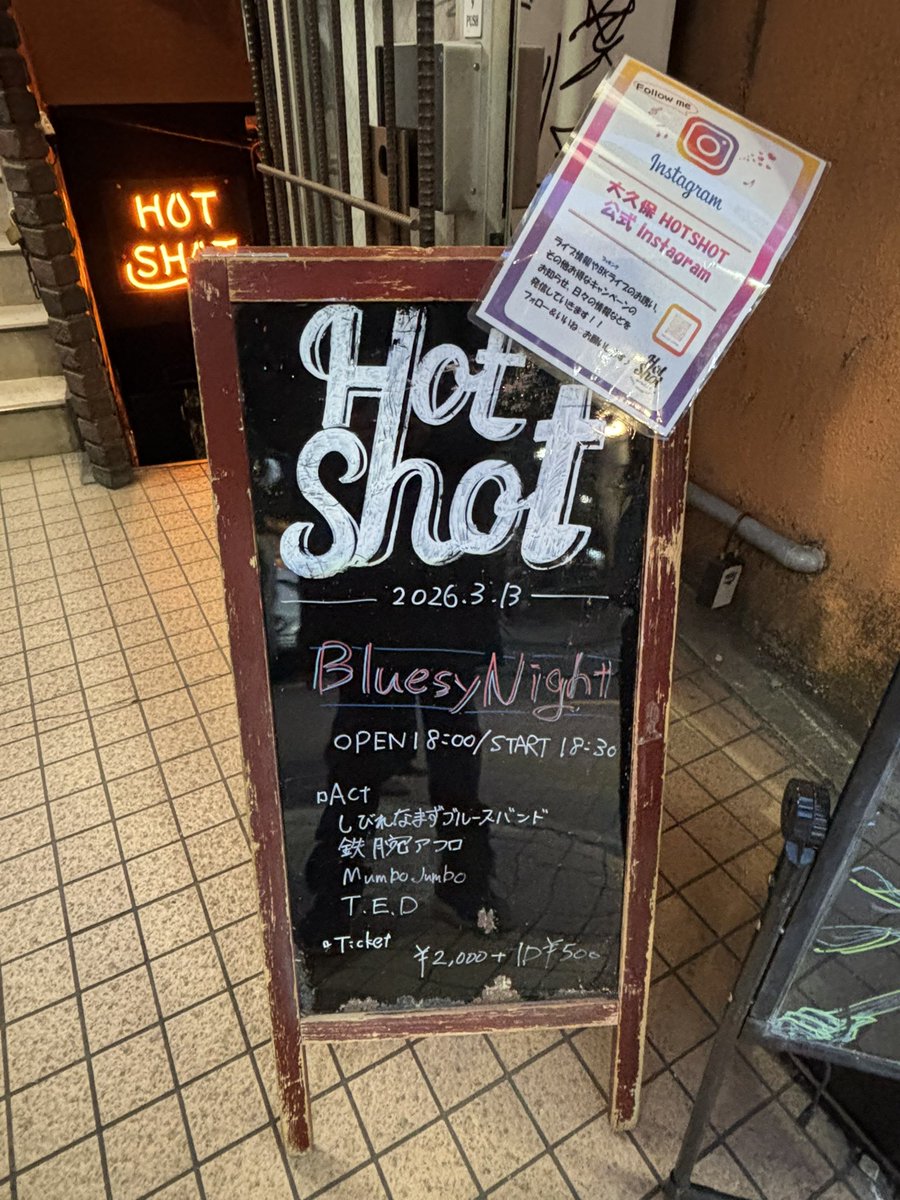 PUSH
HOT
SHOT
Follow me
Instagram
大久保 HOTSHOT
公式 Instagram
ライブ情報やBKライブのお願い、
その他お得なキャンペーンの
お知らせ、日々の情報などを
発信していきます！！
フォロー&いいね お願いします
Hot
Shot
Hot
Shot
2026.3.13
Bluesy Night
OPEN 18:00/START 18:30
Act
しびれなまずブルースバンド
鉄腕アフロ
Mumbo Jumbo
T.E.D
Ticket
¥2,000+1D¥500